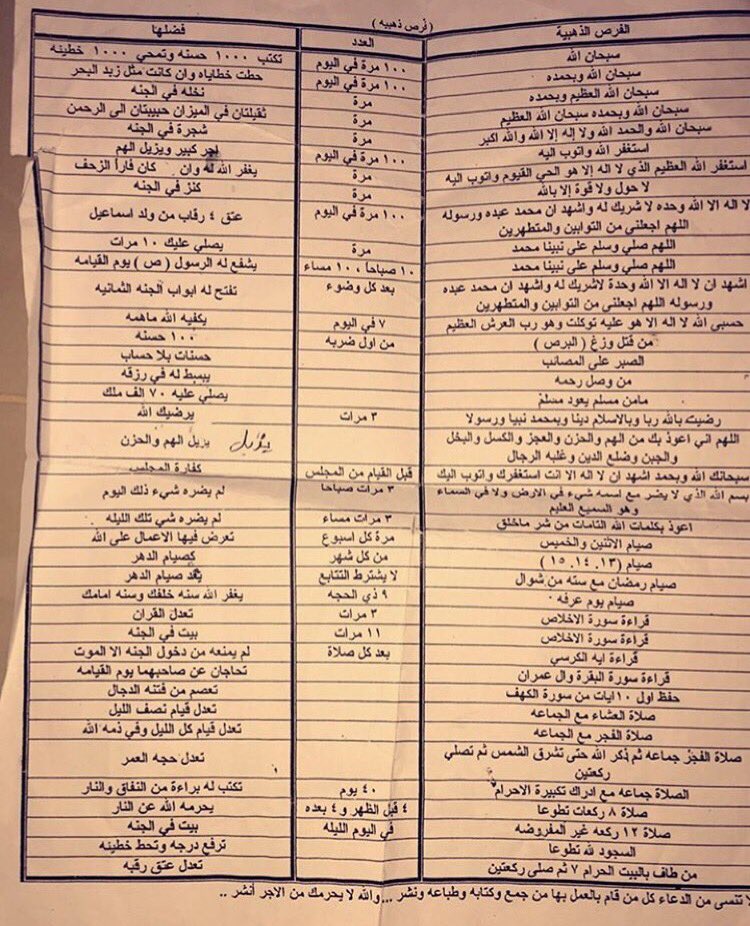 ( فرص ذهبيه )
الفرص الذهبية | العدد | فضلها
سبحان الله | ١٠٠ مرة في اليوم | تكتب ١٠٠٠ حسنه وتمحي ١٠٠٠ خطيئه
سبحان الله وبحمده | ١٠٠ مرة في اليوم | حطت خطاياه وان كانت مثل زبد البحر
سبحان الله العظيم وبحمده | مرة | نخله في الجنه
سبحان الله وبحمده سبحان الله العظيم | مرة | ثقيلتان في الميزان حبيبتان الى الرحمن
سبحان الله والحمد الله ولا إله إلا الله والله اكبر | مرة | شجرة في الجنه
استغفر الله واتوب اليه | ١٠٠ مرة في اليوم | اجر كبير ويزيل الهم
استغفر الله العظيم الذي لا اله إلا هو الحي القيوم واتوب اليه | مرة | يغفر الله له وان كان فارأ الزحف
لا حول ولا قوة إلا بالله | مرة | كنز في الجنه
لا اله الا الله وحده لا شريك له واشهد ان محمد عبده ورسوله | ١٠٠ مرة في اليوم | عتق ٤ رقاب من ولد اسماعيل
اللهم اجعلني من التوابين والمتطهرين
اللهم صلي وسلم على نبينا محمد | مرة | يصلي عليك ١٠ مرات
اللهم صلي وسلم على نبينا محمد | ١٠ صباحاً ، ١٠ مساء | يشفع له الرسول ( ص ) يوم القيامه
اشهد ان لا اله الا الله وحدة لاشريك له واشهد ان محمد عبده | بعد كل وضوء | تفتح له ابواب الجنه الثمانيه
ورسوله اللهم اجعلني من التوابين والمتطهرين
حسبى الله لا اله الا هو عليه توكلت وهو رب العرش العظيم | ٧ في اليوم | يكفيه الله ماهمه
من قتل وزغ ( البرص ) | من اول ضربه | ١٠٠ حسنه
الصبر على المصائب | حسنات بلا حساب
من وصل رحمه | يبسط له في رزقه
مامن مسلم يعود مسلم | يصلي عليه ٧٠ الف ملك
رضيت بالله ربا وبالاسلام دينا وبمحمد نبيا ورسولا | ٣ مرات | يرضيك الله
اللهم اني اعوذ بك من الهم والحزن والعجز والكسل والبخل | يزيل الهم والحزن
والجبن وضلع الدين وغلبه الرجال
سبحانك الله وبحمد اشهد ان لا اله الا انت استغفرك واتوب اليك | قبل القيام من المجلس | كفارة المجلس
بسم الله الذي لا يضر مع اسمه شيء في الارض ولا في السماء | ٣ مرات صباحا | لم يضره شيء ذلك اليوم
وهو السميع العليم
اعوذ بكلمات الله التامات من شر ماخلق | ٣ مرات مساء | لم يضره شي تلك الليله
صيام الاثنين والخميس | مرة كل اسبوع | تعرض فيها الاعمال على الله
صيام ( ١٣، ١٤، ١٥ ) | من كل شهر | كصيام الدهر
صيام رمضان مع سته من شوال | لا يشترط التتابع | يعد صيام الدهر
صيام يوم عرفه | ٩ ذي الحجه | يغفر الله سنه خلفك وسنه امامك
قراءة سورة الاخلاص | ٣ مرات | تعدل القران
قراءة سورة الاخلاص | ١١ مرات | بيت في الجنه
قراءة ايه الكرسي | بعد كل صلاة | لم يمنعه من دخول الجنه الا الموت
قراءة سورة البقرة وال عمران | تحاجان عن صاحبهما يوم القيامه
حفظ اول ١٠ايات من سورة الكهف | تعصم من فتنه الدجال
صلاة العشاء مع الجماعه | تعدل قيام نصف الليل
صلاة الفجر مع الجماعه | تعدل قيام كل الليل وفي ذمه الله
صلاة الفجر جماعه ثم ذكر الله حتى تشرق الشمس ثم تصلي | تعدل حجه العمر
ركعتين
الصلاة جماعه مع ادراك تكبيرة الاحرام | ٤٠ يوم | تكتب له براءة من النفاق والنار
صلاة ٨ ركعات تطوعا | ٤ قبل الظهر و ٤ بعده | يحرمه الله عن النار
صلاة ١٢ ركعه غير المفروضه | في اليوم الليله | بيت في الجنه
السجود لله تطوعا | ترفع درجه وتحط خطيئه
من طاف بالبيت الحرام ٧ ثم صلى ركعتين | تعدل عتق رقبه
لا تنسى من الدعاء كل من قام بالعمل بها من جمع وكتابه وطباعه ونشر ...والله لا يحرمك من الاجر أنشر ..